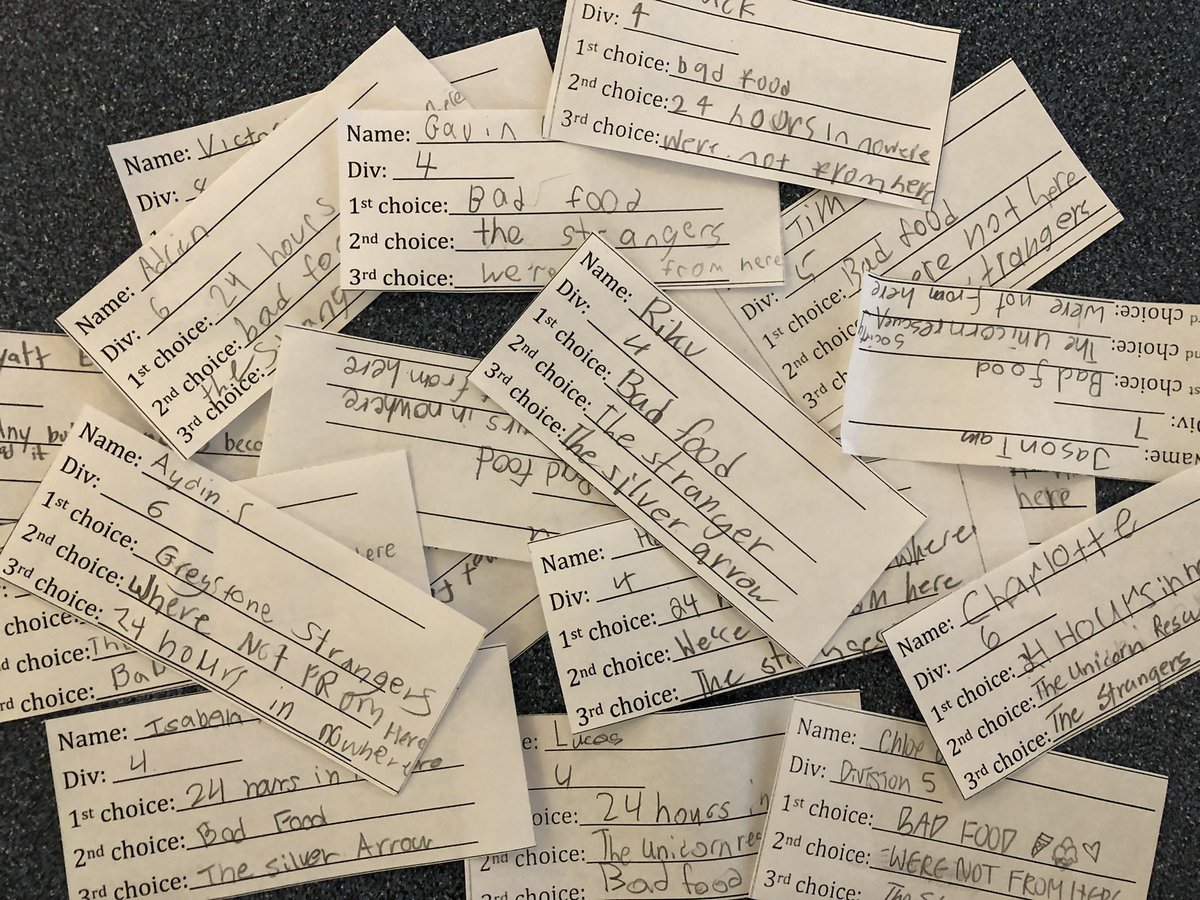 Div: 4
1st choice: bad food
2nd choice: 24 hours in nowere
3rd choice: were not from here
Name: Gavin
Div: 4
1st choice: Bad food
2nd choice: the strangers
3rd choice: we're from here
Name: Victo
Div:
Name: Adrian
Div: 6
1st choice: 24 hours
2nd choice: bad fo
3rd choice: the
Tim
Div: 5
1st choice: Bad food
2nd choice: ere not here
3rd choice: strangers
Name: Riku
Div: 4
1st choice: Bad food
2nd choice: The stranger
3rd choice: The silver arrow
Name: Jason Tam
Div: 7
1st choice: Bad food
2nd choice: The unicorn rescue society
3rd choice: Were not from here
Bad food
in nowhere
from here
yatt
Any bu
it
beco
Name: Aydin.
Div: 6
1st choice: Greystone Strangers
2nd choice: Where Not From Here
3rd choice: 24 hours in nowhere
here
choice:
2nd choice: Th
3rd choice: Ba
Name:
Div: 4
1st choice: 24
2nd choice: We're
3rd choice: The st
where
here
here
Name: Charlotte
Div: 6
1st choice: 24 Hours in n
2nd choice: The Unicorn Rescu
3rd choice: The Strangers
Name: Isabela
Div: 4
1st choice: 24 hours in
2nd choice: Bad Food
3rd choice: The silver Arrow
Lucas
4
choice: 24 hours in
2nd choice: The unicorn re
Bad food
Name: Chloe
Div: Division 5
1st choice: BAD FOOD
2nd choice: WERE NOT FROM HERE
3rd choice: The S